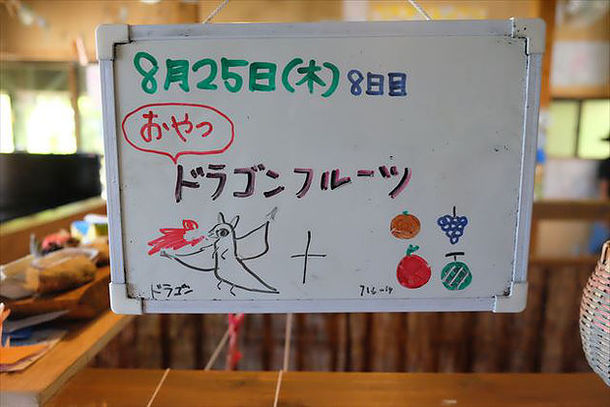 8月25日(木) 8日目
おやつ
ドラゴンフルーツ
ドラゴン
フルーツ